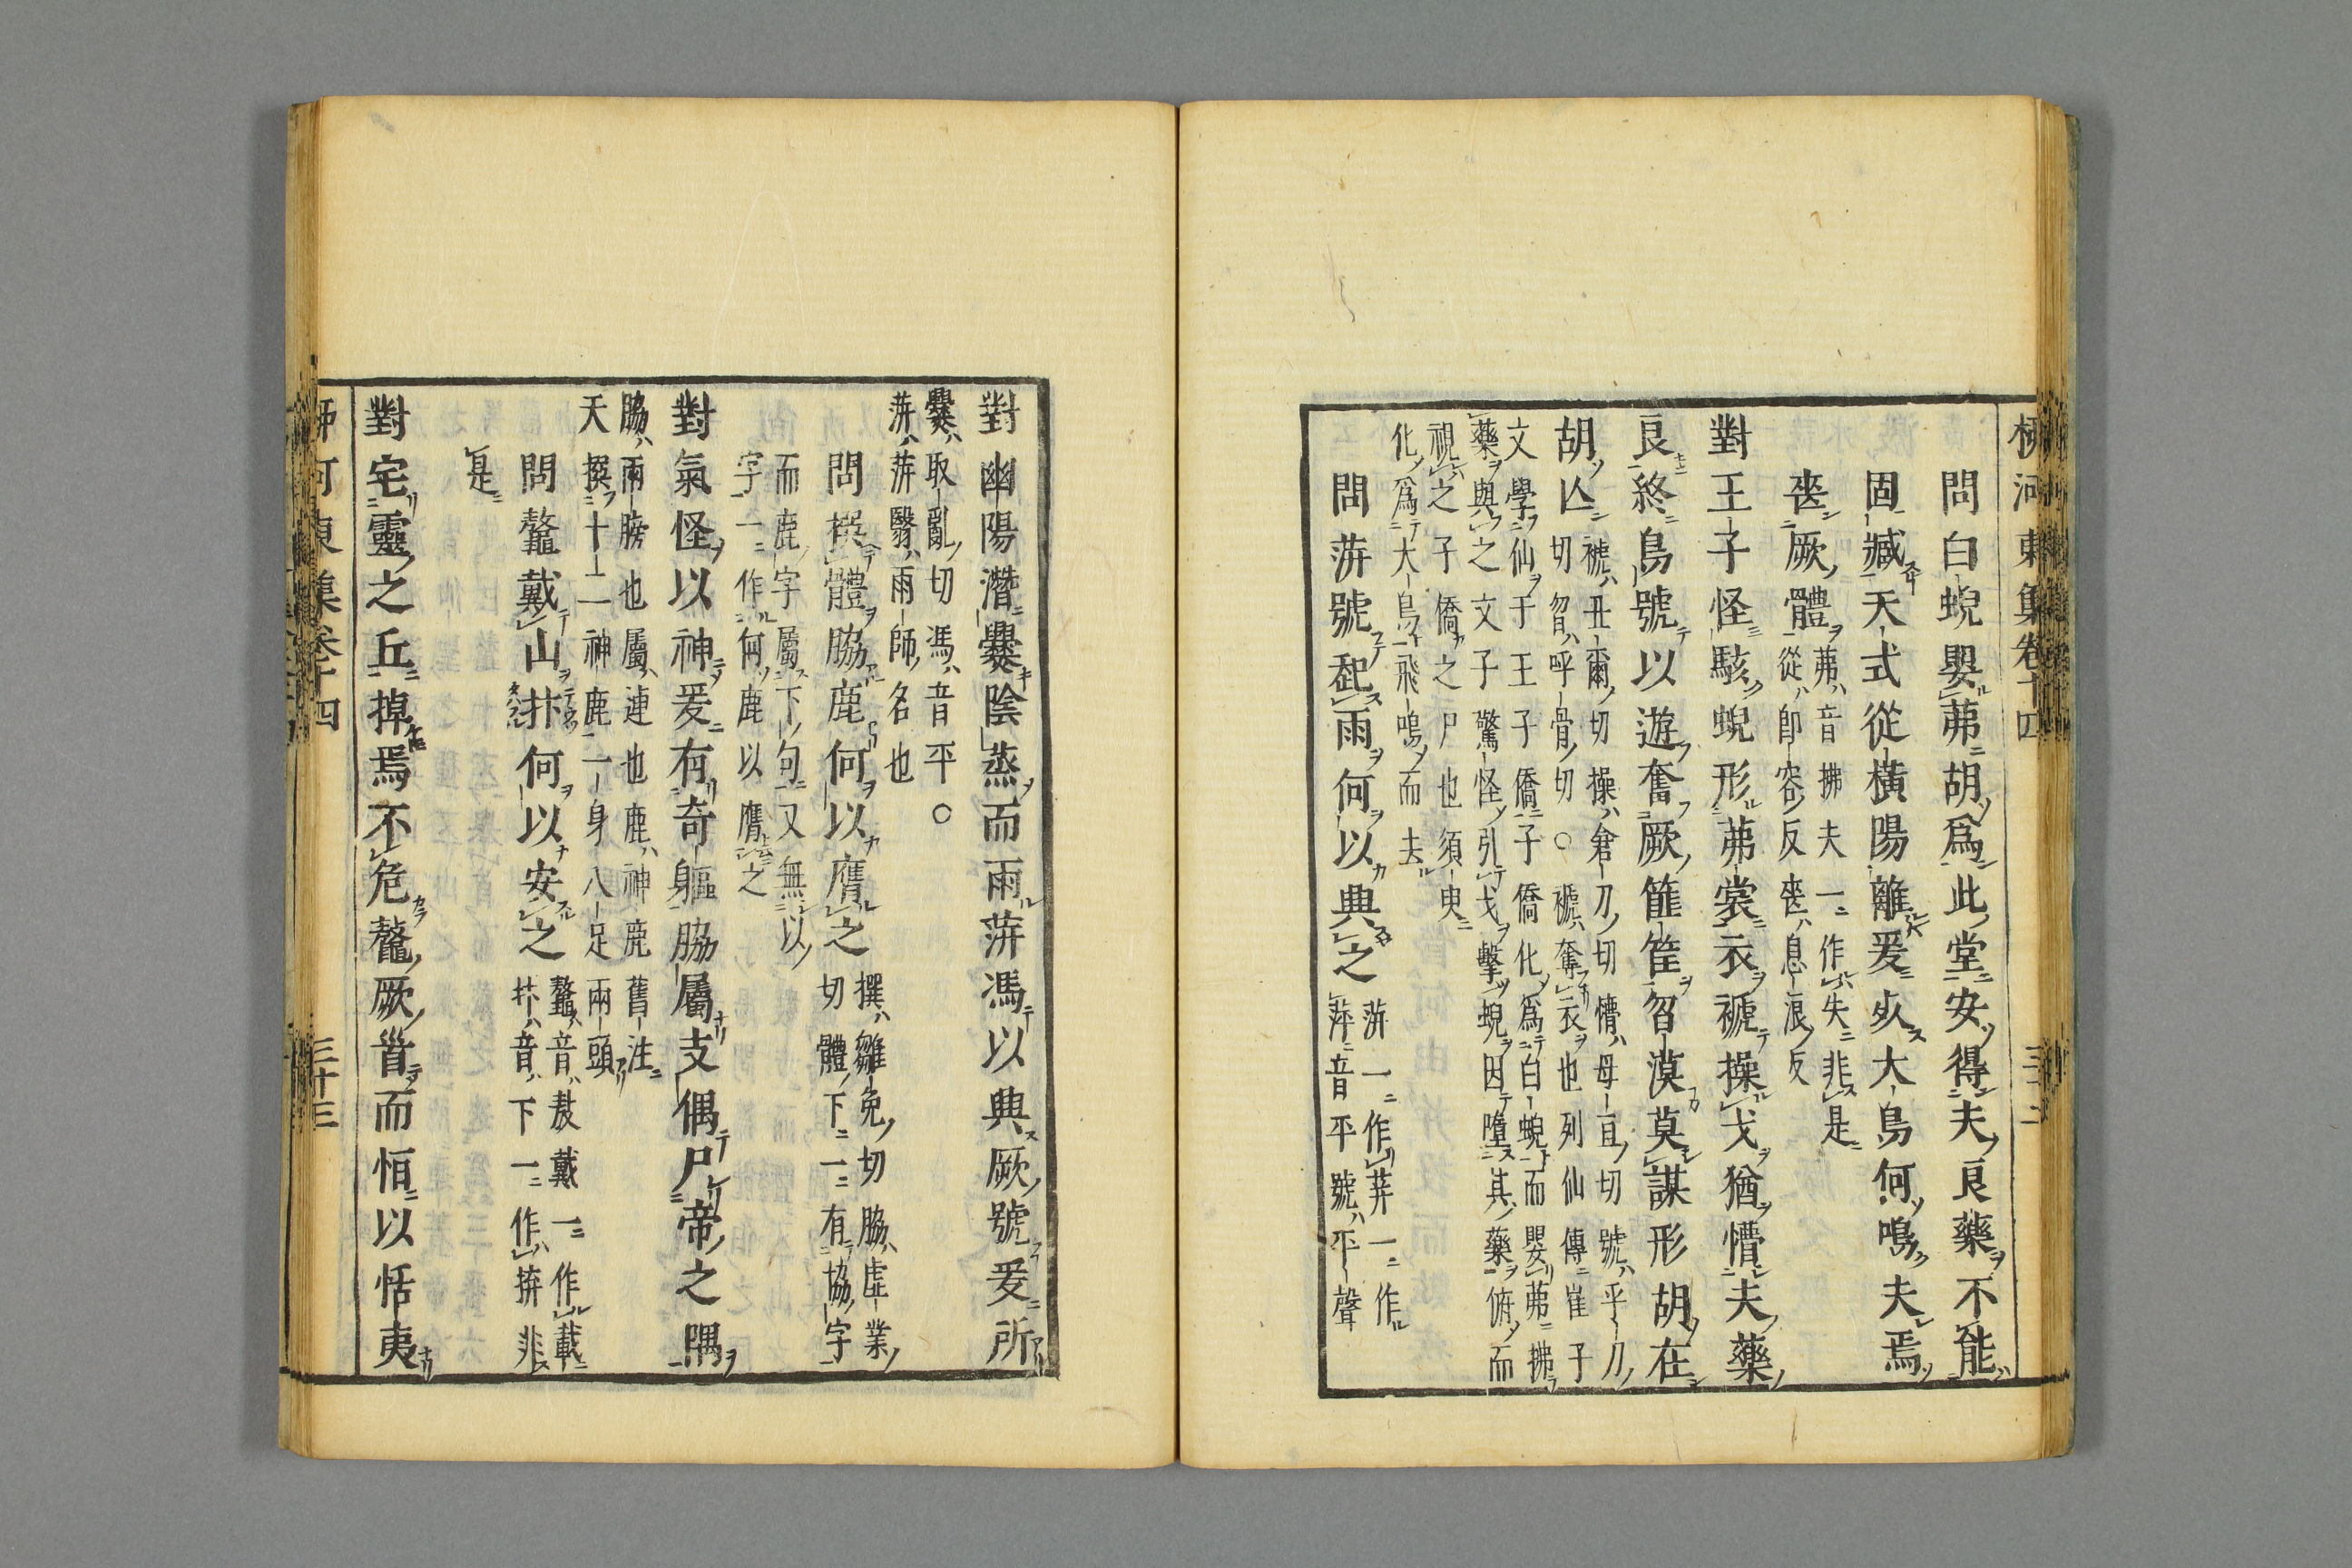 柳河東集卷十四
問白蜺嬰茀胡爲此堂安得夫良藥不能
固臧天式從橫陽離爰死大鳥何鳴夫焉
喪厥體茀音拂夫一作失非是
從即容反喪息浪反
對王子怪駭蜺形茀裳衣褫操戈猶懵夫藥
良終鳥號以遊奮厥篚筐智漠莫謀形胡在
胡亾褫丑爾切操倉刀切懵母亘切號乎刀
切智呼骨切○褫奪衣也列仙傳崔子
文學仙于王子僑子僑化爲白蜺而嬰茀拂
藥與之文子驚怪引戈擊蜺因墮其藥俯而
視之子僑之尸也須臾
化爲大鳥飛鳴而去
問蓱號起雨何以興之蓱一作荓一作
萍音平號平聲
對幽陽潛爨陰蒸而雨蓱馮以興厥號爰所
爨取亂切馮音平○
蓱蓱翳雨師名也
問撰體脇鹿何以膺之撰雛免切脇虛業
切體下一有協字
而鹿字屬下句又無以
字一作何鹿以膺之
對氣怪以神爰有奇軀脇屬支偶尸帝之隅
脇兩膀也屬連也鹿神鹿舊注
天撰十二神鹿一身八足兩頭
問鼇戴山抃何以安之鼇音敖戴一作載
抃音卞一作拚非
是
對宅靈之丘掉焉不危鼇厥首而恒以恬夷
柳河東集卷十四
三十三